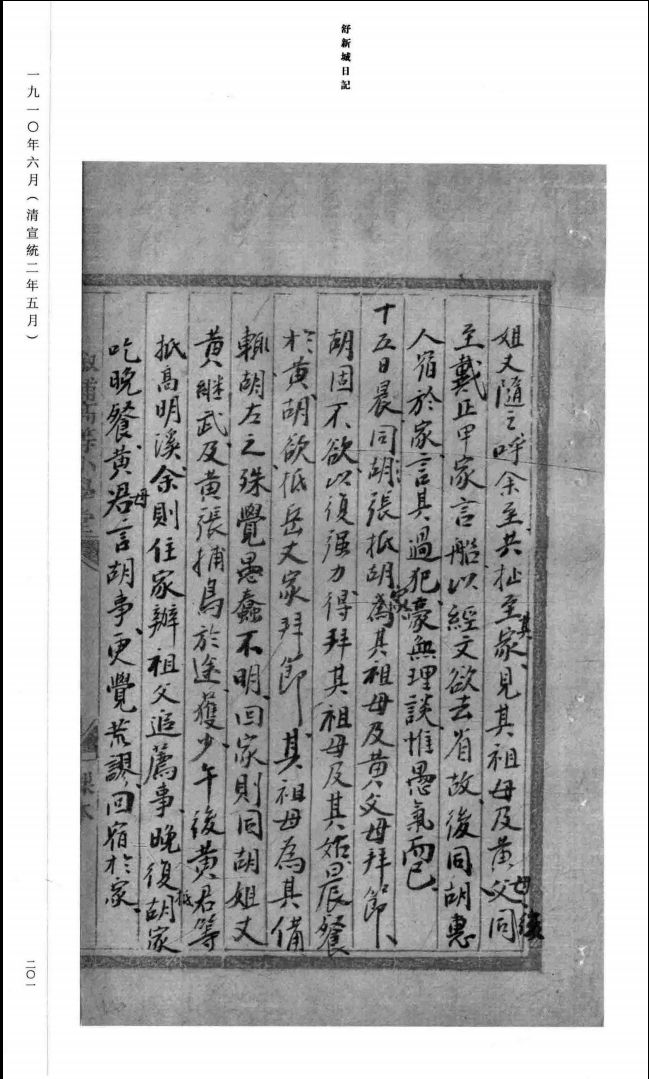 舒新城日記
一九一〇年六月(清宣統二年五月)
姐丈隨之呼余至共扯至其家見其祖母及黃父母同
至戴正甲家言船以經文欲去省故後同胡惠
人宿於家言其過犯豪無理談惟愚氣而已
十五日晨同胡張抵胡家為其祖母及黃父母拜節
胡固不欲以復强力得拜其祖母及其姑晨餐
於黃胡欲抵岳丈家拜節其祖母為其備
轎胡左之殊覺愚蠢不明回家則同胡姐丈
黃繼武及黃張捕鳥於途獲少午後黃君等
抵高明溪余則住家辦祖父追薦事晚復抵胡家
吃晚餐黃君母言胡事更覺荒謬回宿於家
二〇一